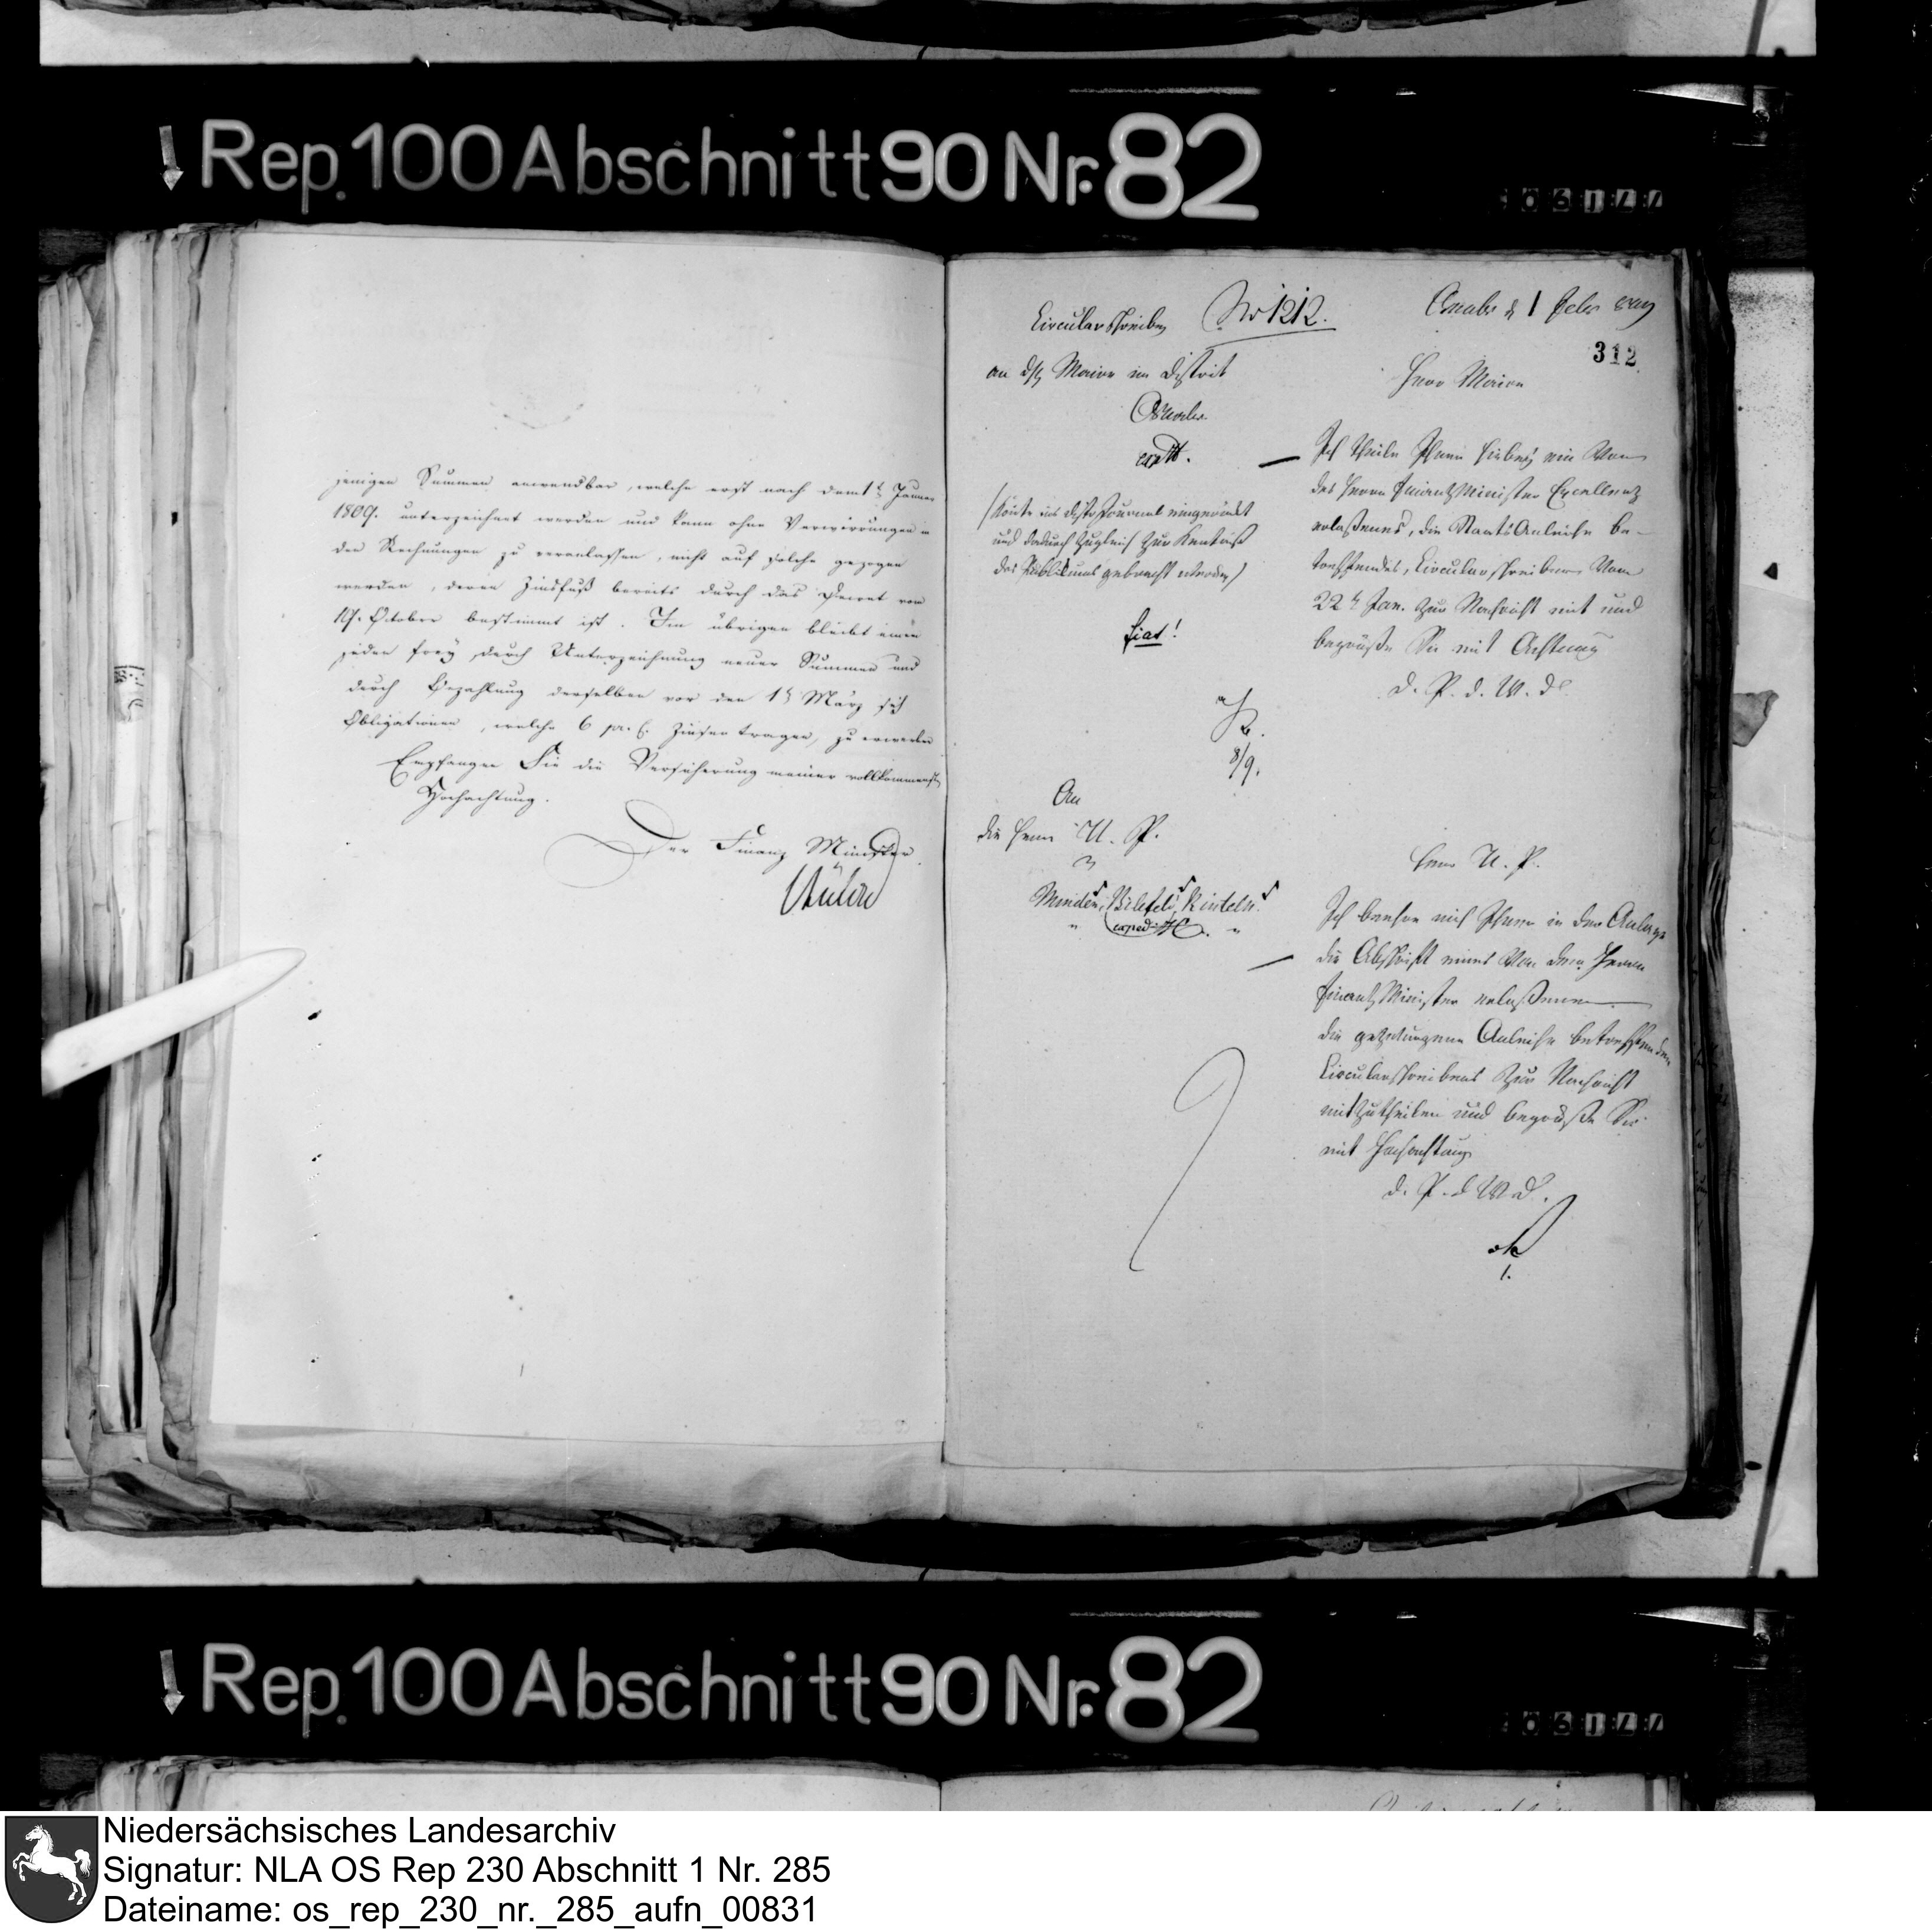 Rep. 100 Abschnitt 90 Nr. 82
jenigen Summen anwendbar, welche erst nach dem 1t Januar
1809. unterzeichnet werden und kann ohne Verwirrungen in
den Rechnungen zu veranlassen, nicht auf solche gezogen
werden, deren Zinsfuß bereits durch das Decret vom
19. October bestimmt ist. Im übrigen bleibt einem
jeden frey, durch Unterzeichnung neuer Summen und
durch Bezahlung derselben vor den 1t März sich
Obligationen, welche 6 pr. C. Zinsen tragen, zu erwerben
Empfangen Sie die Versicherung meiner vollkommensten
Hochachtung.
Der Finanz Minister
Bülow
Circularschreiben
No 1212.
Osnabr d 1 Febr
312
an die Maires im District
Osnabr.
expdt.
(Könte ins Journal eingerückt
und dadurch zugleich zur Kentniß
des Publikums gebracht werden)
fiat!
Herr Maire
Ich theile Ihnen hiebey ein von
des Herrn Finantz Minister Excellentz
erlaßenes, die Staats Anleihe be-
treffendes, Circularschreiben vom
22t Jan. zur Nachricht mit und
begrüße Sie mit Achtung
D. P. d. W. D.
8/9.
An
die Herrn U. P.
Minden, Bilefeld, Rinteln.
exped.
Herr U. P.
Ich beehre mich Ihnen in der Anlage
die Abschrift eines von dem Herrn
Finantz Minister erlaßenen
die gezwungene Anleihe betreffenden
Circularschreibens zur Nachricht
mitzutheilen und begrüße Sie
mit Hochachtung
d. P. d W. D.
1.
Rep. 100 Abschnitt 90 Nr. 82
Niedersächsisches Landesarchiv
Signatur: NLA OS Rep 230 Abschnitt 1 Nr. 285
Dateiname: os_rep_230_nr._285_aufn_00831